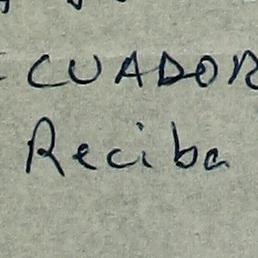 ECUADOR
Reciba